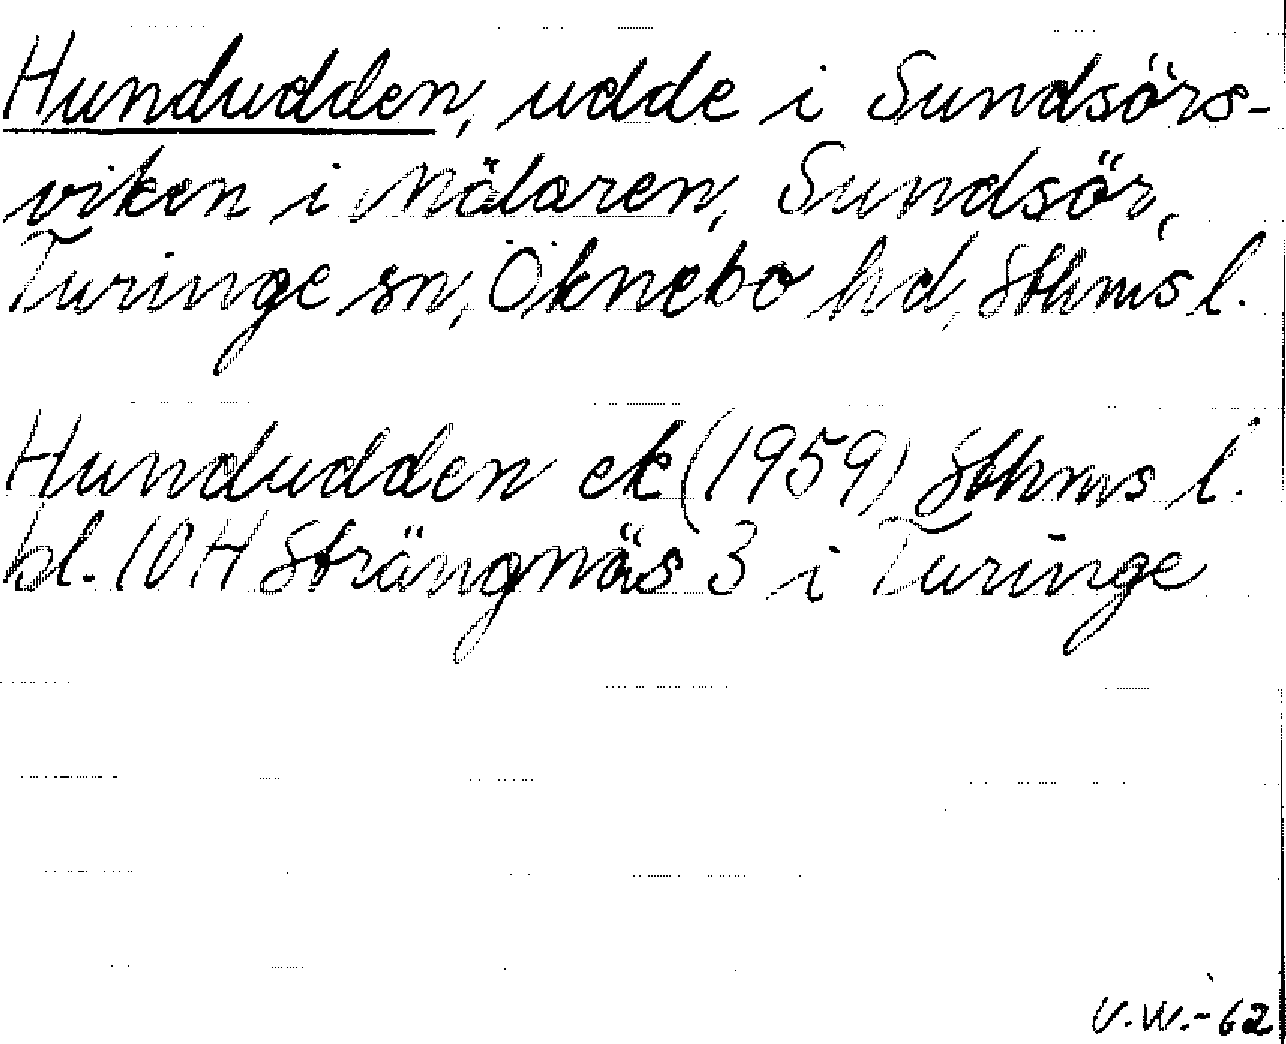 Hundudden, udde i Sundsörs-
viken i Mälaren, Sundsör,
Turinge sn, Öknebo hd, Sthms l.
Hundudden ek (1959) Sthms l.
bl. 10H Strängnäs 3 i Turinge
V.W.-62